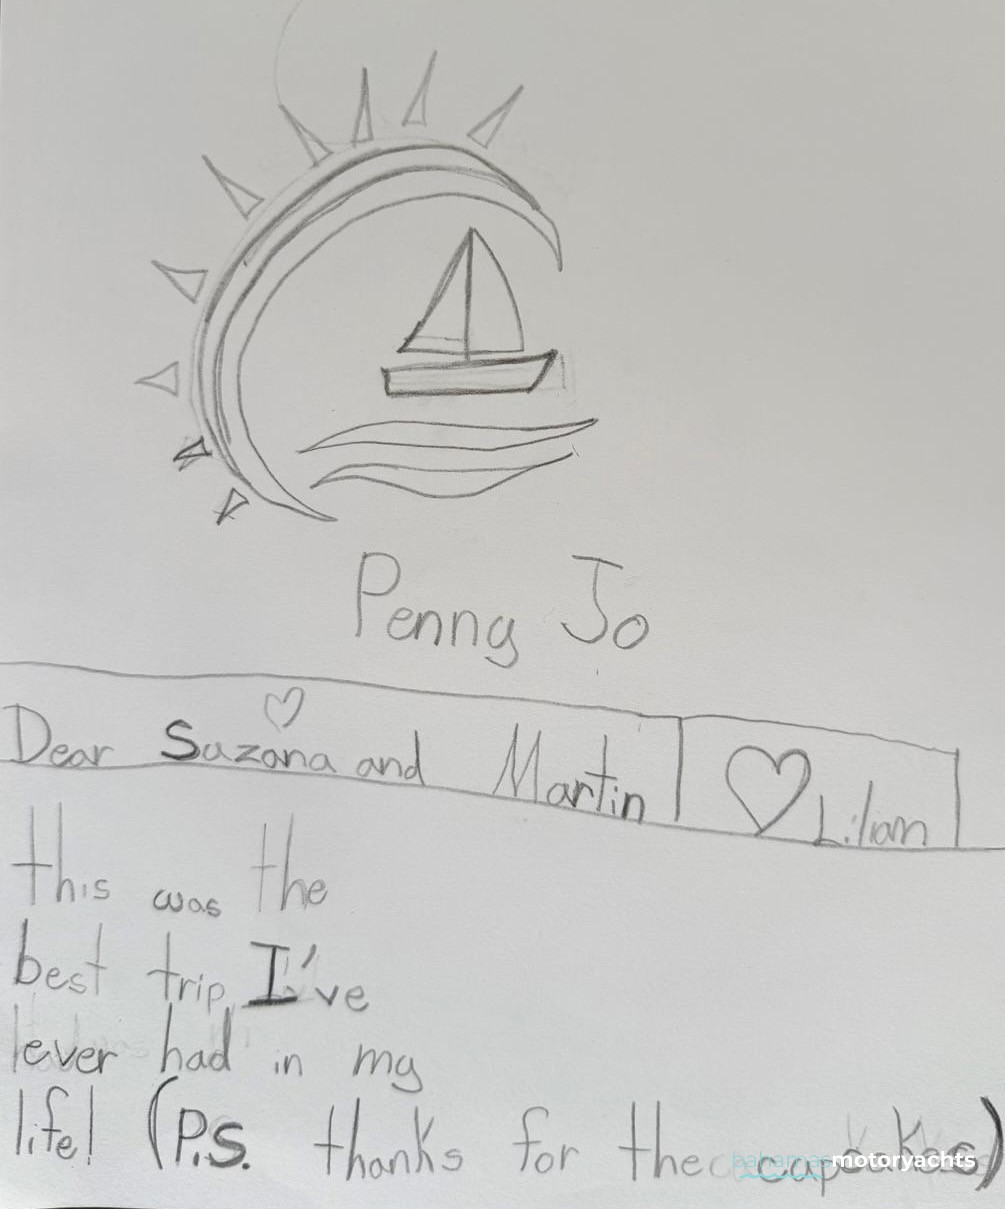 Penny Jo
Dear Suzana and Martin
Lilian
this was the
best trip I've
ever had in my
life! (P.S. thanks for the capcakes)
bahamasmotoryachts